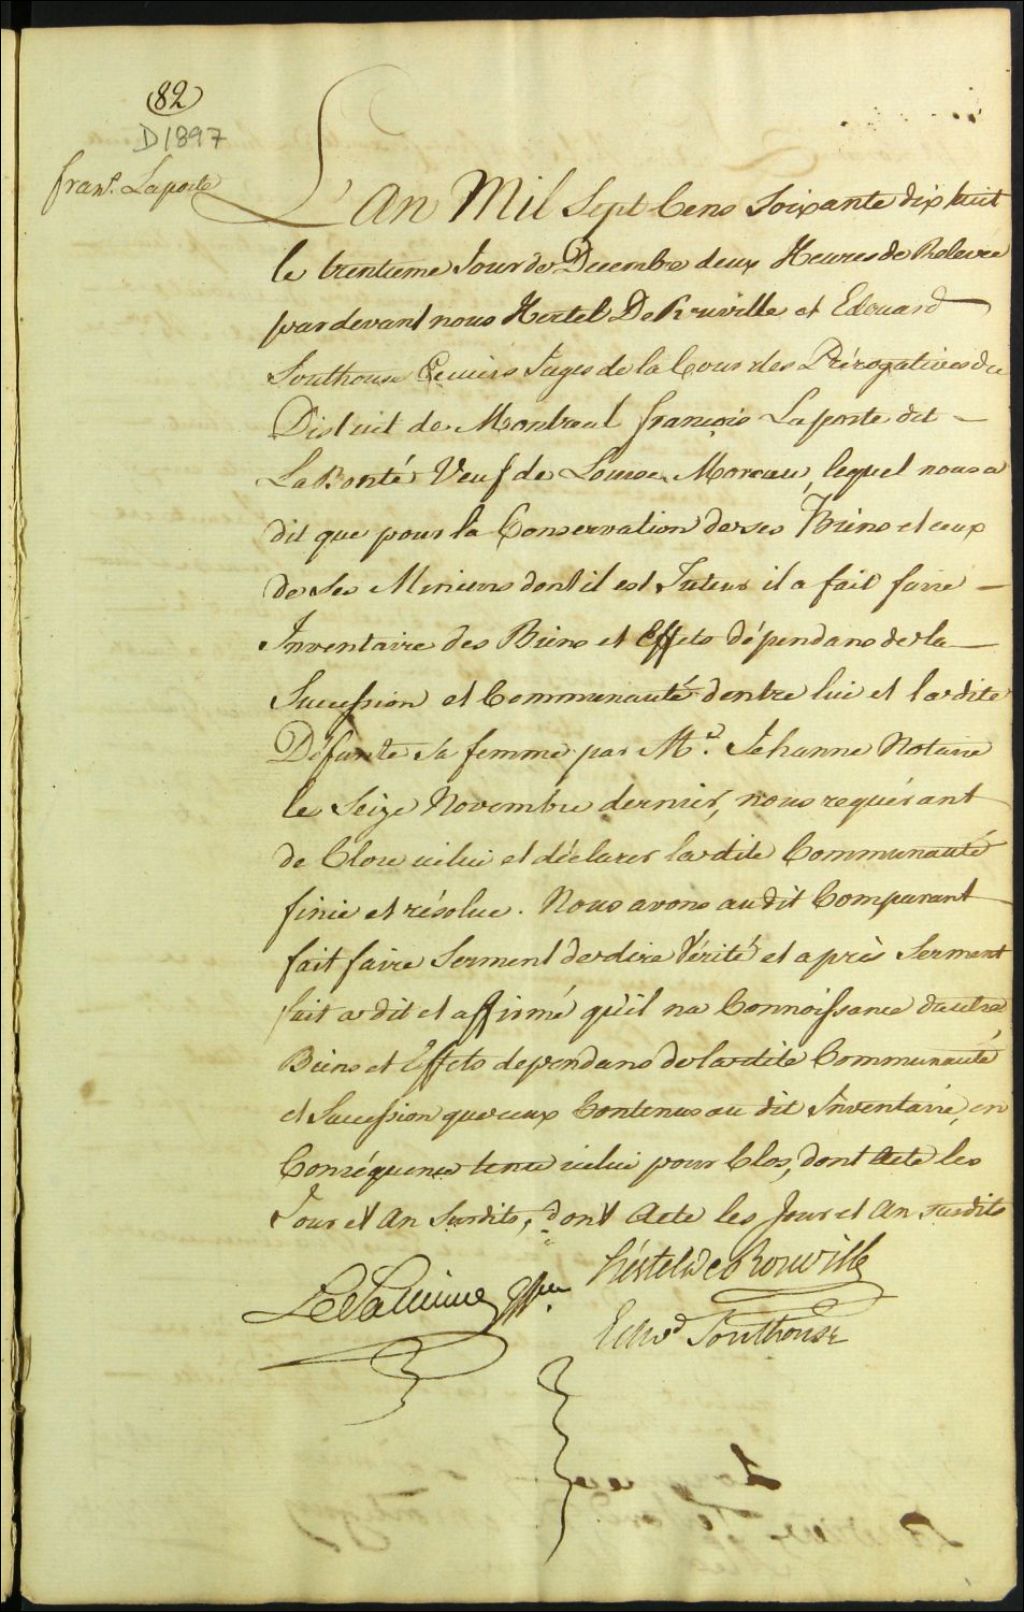 82
D1897
fran.s Laporte
L'An Mil Sept Cens Soixante dix huit
le trentieme Jour de Decembre deux Heures de Relevée
pardevant nous Hertel De Rouville et Edouard
Southouse Ecuiers Juges de la Cour des Prérogatives du
District de Montreal françois Laporte dit
LaBonté Veuf de Louise Moreau, lequel nous a
dit que pour la Conservation de ses Biens et ceux
de ses Mineurs dont il est Tuteur il a fait faire
Inventaire des Biens et Effets dépendans de la
Succession et Communauté d'entre lui et la dite
Défunte sa femme par M.e Jehanne Notaire
le Seize Novembre dernier, nous requérant
de Clore icelui et déclarer la dite Communauté
finie et résolue. Nous avons au dit Comparant
fait faire Serment de dire Vérité et après Serment
fait a dit et affirmé qu'il na Connoissance dautres
Biens et Effets dependans de la dite Communauté
et Succession que ceux Contenus au dit Inventaire, en
Conséquence tenu icelui pour Clos, dont Acte les
Jour et An Susdits, dont Acte les Jour et An susdits
hertel de Rouville
LePalluieur Gffier
Edwd Southouse